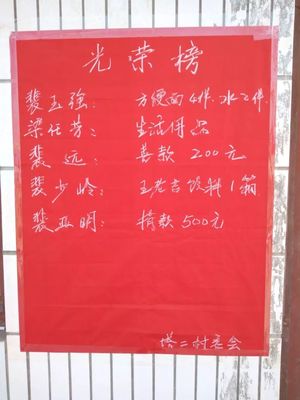 光荣榜
裴玉强：方便面4件.水2件
梁任芳：生活用品
裴远：善款200元
裴少岭：王老吉饮料1箱
裴亚明：捐款500元
塔二村委会